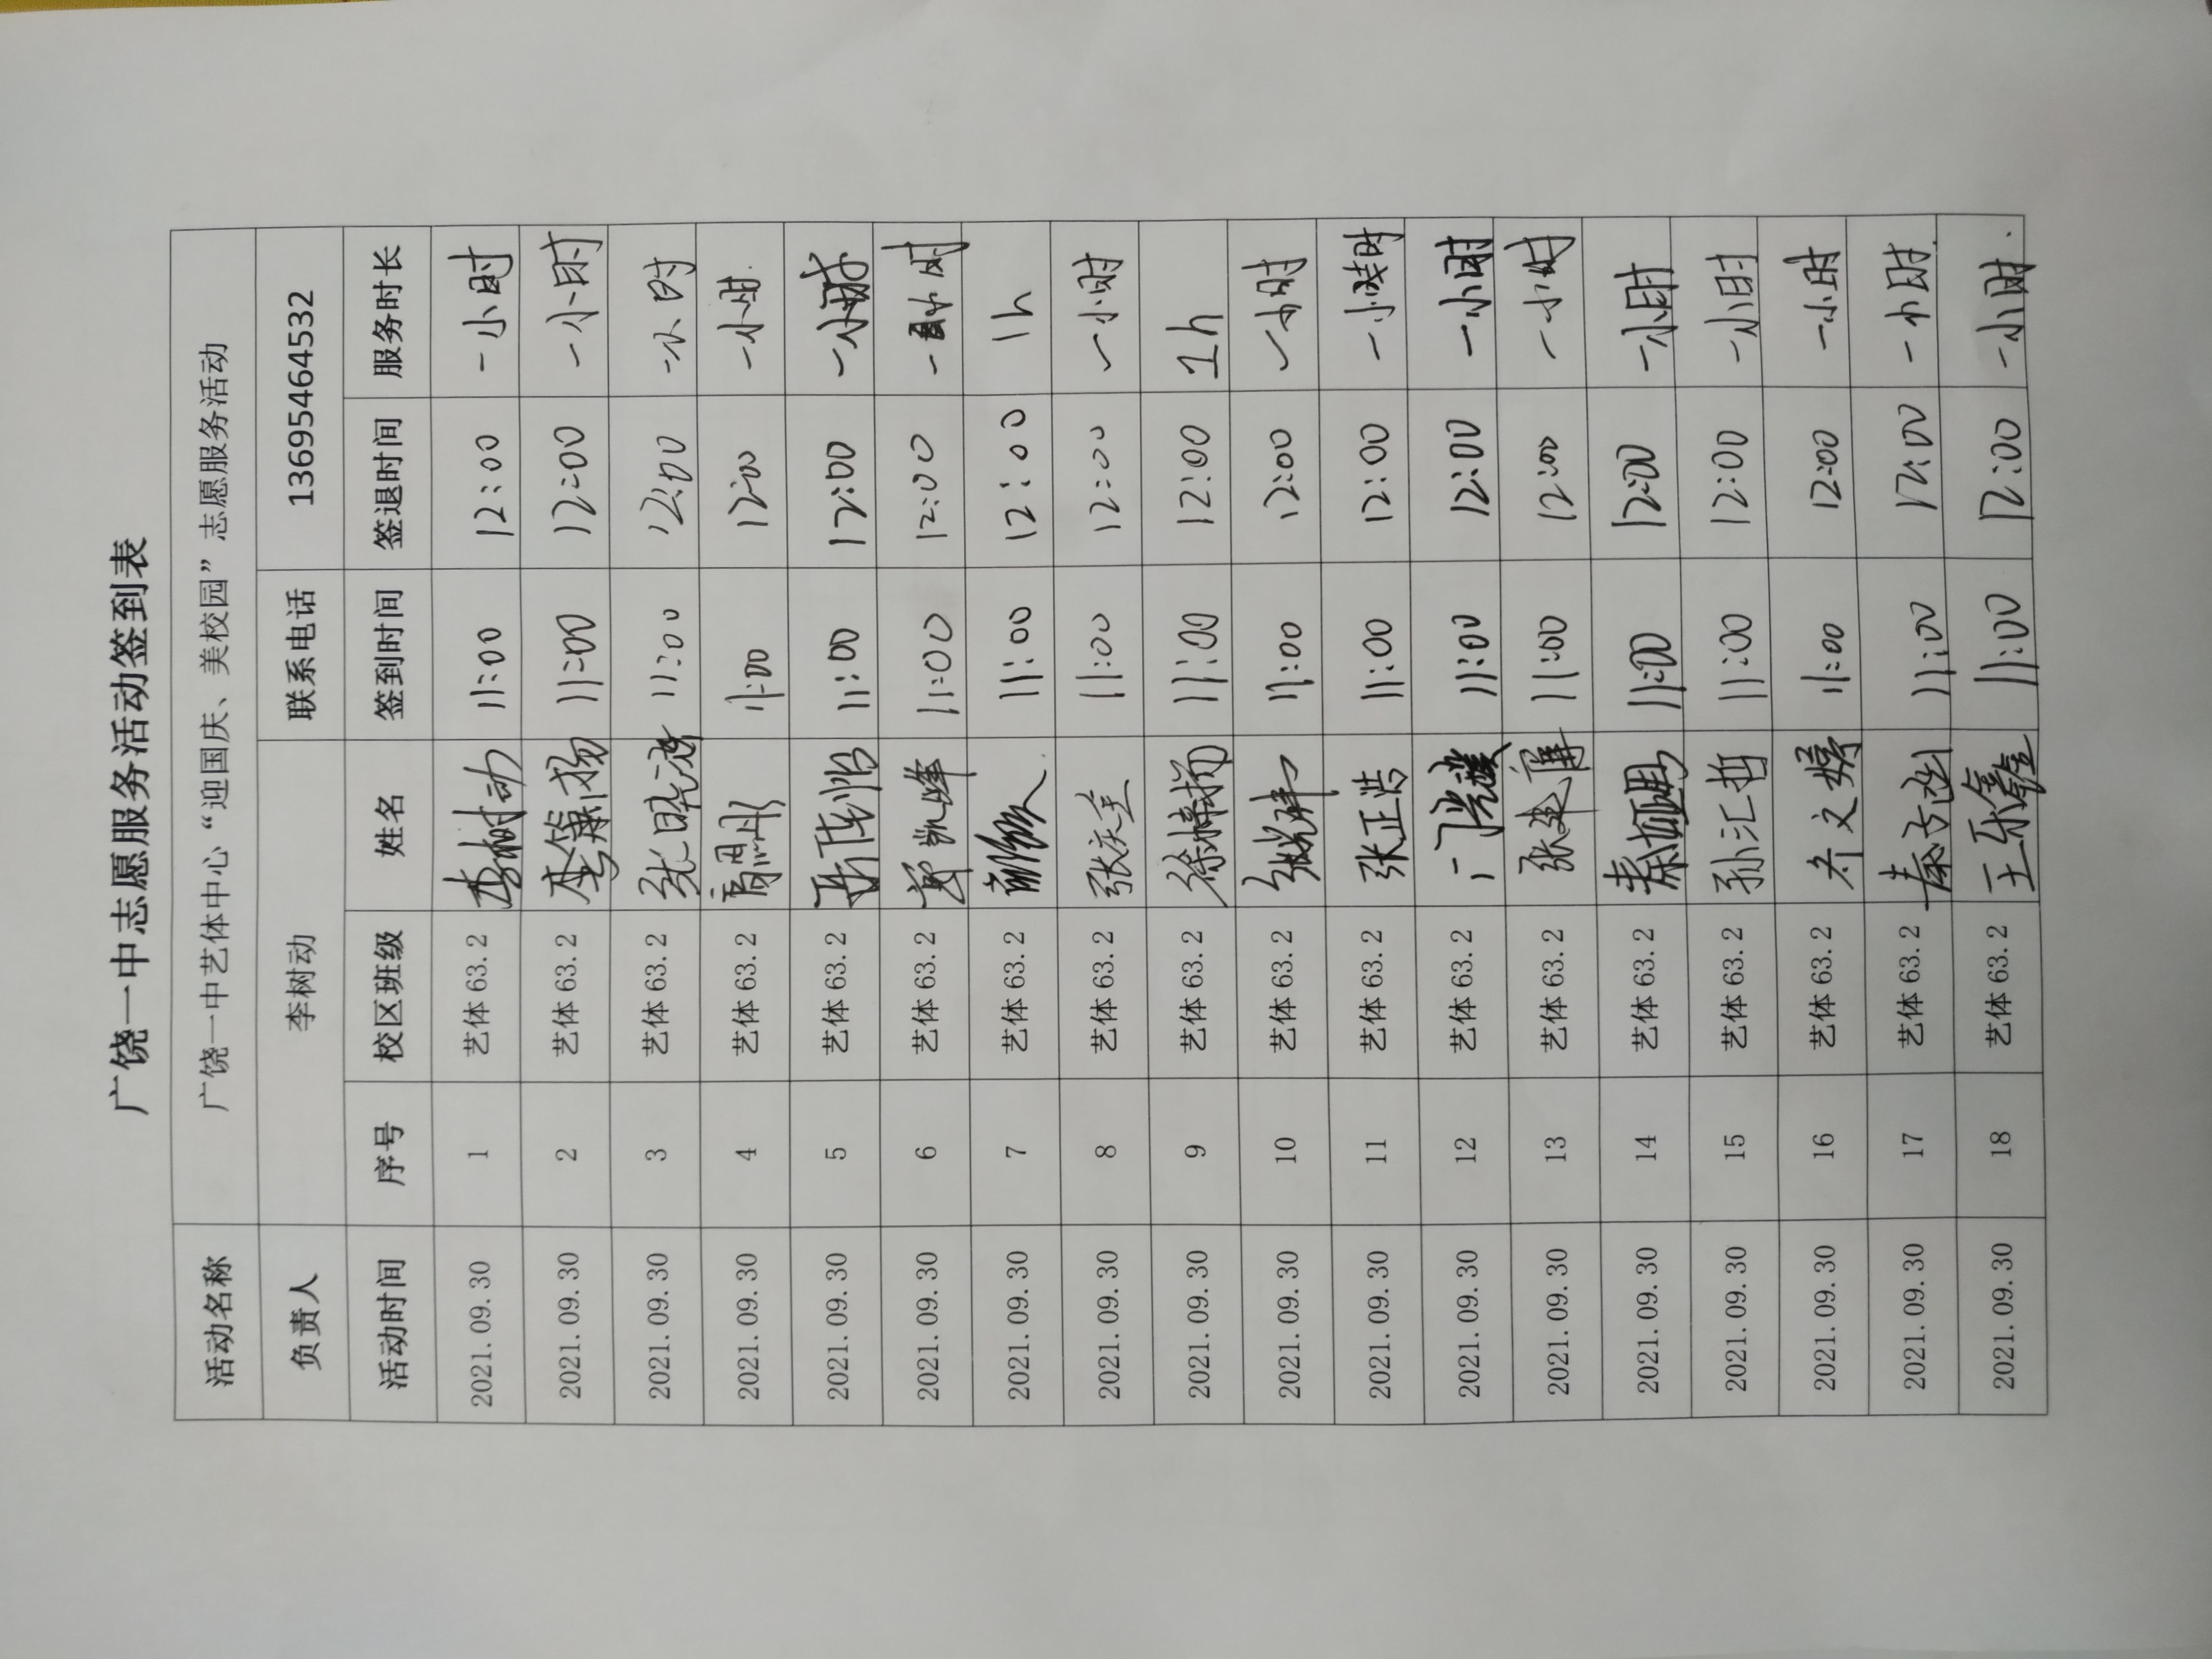 广饶一中志愿服务活动签到表
活动名称 广饶一中艺体中心“迎国庆、美校园”志愿服务活动
负责人 李树动 联系电话 13695464532
活动时间 序号 校区班级 姓名 签到时间 签退时间 服务时长
2021.09.30 1 艺体63.2 李树动 11:00 12:00 一小时
2021.09.30 2 艺体63.2 11:00 12:00 一小时
2021.09.30 3 艺体63.2 11:00 12:00 一小时
2021.09.30 4 艺体63.2 11:00 12:00 一小时
2021.09.30 5 艺体63.2 11:00 12:00 一小时
2021.09.30 6 艺体63.2 11:00 12:00 一小时
2021.09.30 7 艺体63.2 11:00 12:00 1h
2021.09.30 8 艺体63.2 11:00 12:00 一小时
2021.09.30 9 艺体63.2 11:00 12:00 1h
2021.09.30 10 艺体63.2 11:00 12:00 一小时
2021.09.30 11 艺体63.2 张正浩 11:00 12:00 一小时
2021.09.30 12 艺体63.2 11:00 12:00 一小时
2021.09.30 13 艺体63.2 11:00 12:00 一小时
2021.09.30 14 艺体63.2 11:00 12:00 一小时
2021.09.30 15 艺体63.2 孙汇哲 11:00 12:00 一小时
2021.09.30 16 艺体63.2 11:00 12:00 一小时
2021.09.30 17 艺体63.2 11:00 12:00 一小时
2021.09.30 18 艺体63.2 王乐鑫 11:00 12:00 一小时.